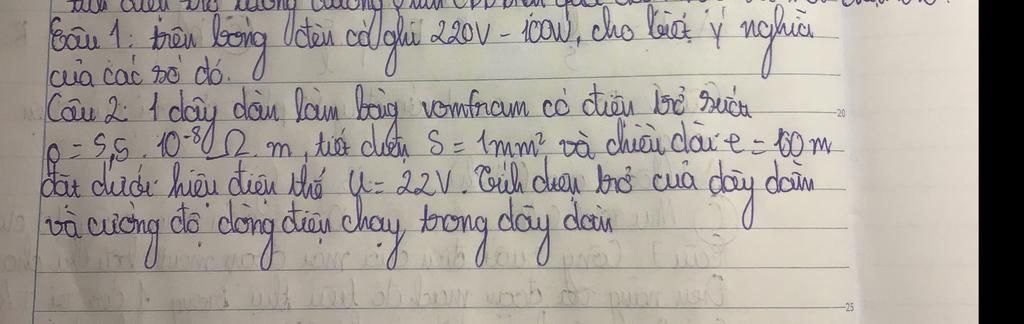 Câu 1: trên bóng đèn có ghi 220V - 100W, cho biết ý nghĩa
của các số đó.
Câu 2: 1 dây dẫn làm bằng vomfram có điện trở suất
ρ = 5,5 . 10⁻⁸ Ω. m, tiết diện S = 1mm² và chiều dài l = 60 m
đặt dưới hiệu điện thế U = 22V. Tính điện trở của dây dẫn
và cường độ dòng điện chạy trong dây dẫn
20
25